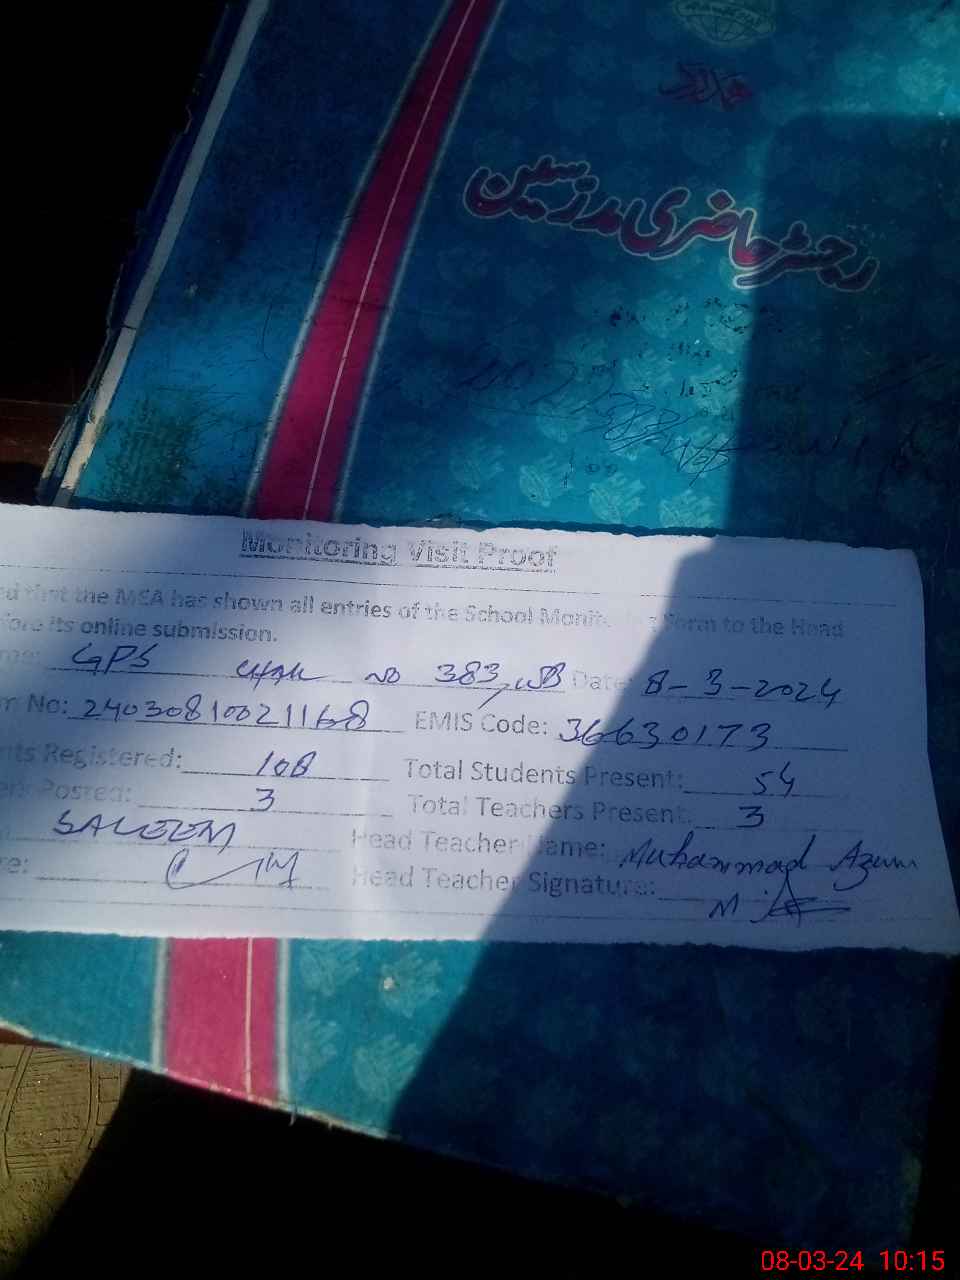 رجسٹر حاضری مدرسین
Monitoring Visit Proof
ed that the MEA has shown all entries of the School Monitoring Form to the Head
fore its online submission.
me: GPS CHAK NO 383/WB Date: 8-3-2024
No: 24030810021168 EMIS Code: 36630173
nts Registered: 108 Total Students Present: 54
Posted: 3 Total Teachers Present: 3
SALEEM Head Teacher Name: Muhammad Azam
re: Head Teacher Signature:
08-03-24 10:15